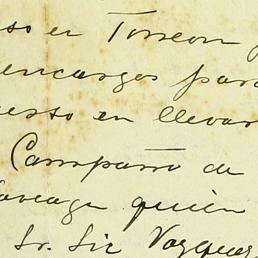 so en Torreon
encargos para
esto en llevar
Campaña de
quién
Sr. Lic Vazquez